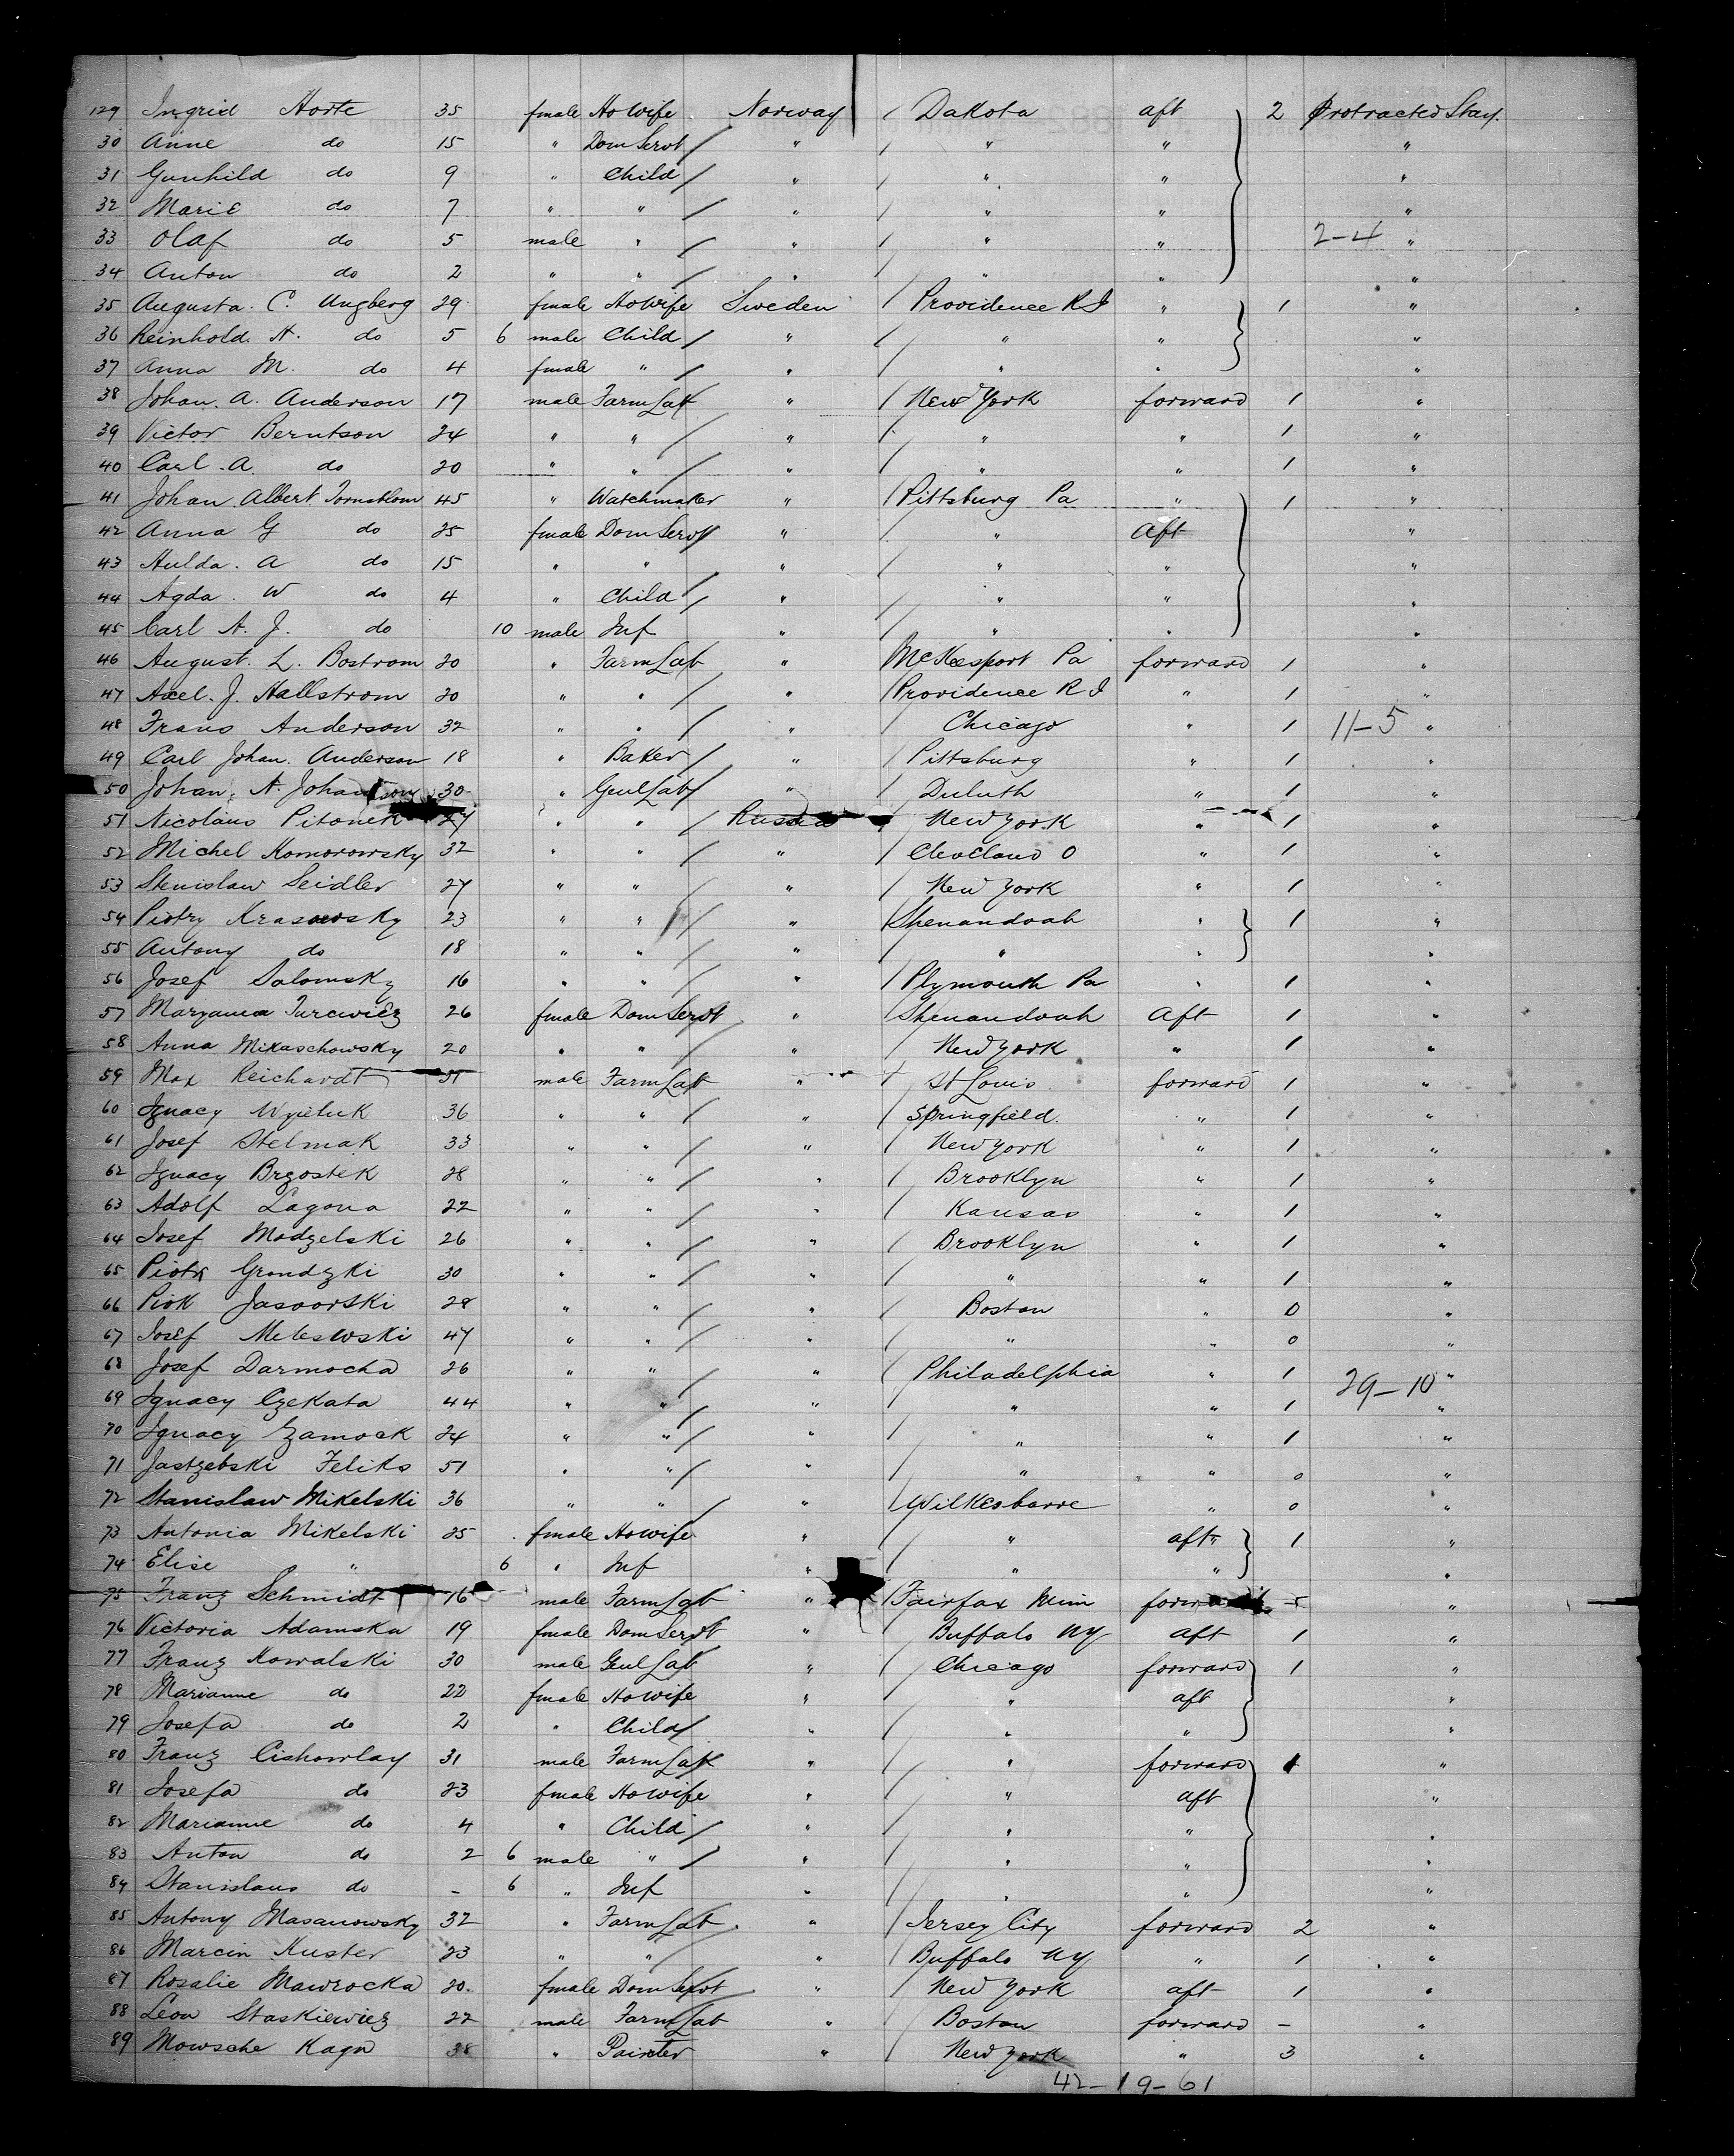 129 Ingrid Horte 35 fmale HoWife Norway / Dakota aft 2 Protracted Stay.
30 Anne do 15 " Dom Servt / " / " " "
31 Gunhild do 9 " Child / " / " " "
32 Marie do 7 " " / " / " " "
33 Olaf do 5 male " / " / " " 2-4 "
34 Anton do 2 " " / " / " " "
35 Augusta. C. Ungberg 29 fmale HoWife Sweden / Providence R I " 1 "
36 Reinhold. H. do 5 6 male Child / " / " " "
37 Anna M. do 4 fmale " / " / " " "
38 Johan. A. Anderson 17 male Farm Lab " / New York forward 1 "
39 Victor Berntson 24 " " / " / " " 1 "
40 Carl. A do 20 " " / " / " " 1 "
41 Johan. Albert. 45 " Watchmaker " / Pittsburg Pa " 1 "
42 Anna G do 25 fmale Dom Servt " / " Aft "
43 Hulda. A do 15 " " " / " " "
44 Agda. W do 4 " Child / " / " " "
45 Carl A. J. do 10 male Inf " / " " "
46 August. L. Bostrom 20 " Farm Lab " / McKeesport Pa forward 1 "
47 Axel. J. Hallstrom 20 " " / " / Providence R I " 1 "
48 Frans Anderson 32 " " / " / Chicago " 1 11-5 "
49 Carl Johan. Anderson 18 " Baker / " / Pittsburg " 1 "
50 Johan. A. Johanson 30 " Genl Lab / " / Duluth " 1 "
51 Nicolaus Pitonek 27 " " / Russia / New York " 1 "
52 Michel Komorowsky 32 " " / " / Cleveland O " 1 "
53 Stenislaw Seidler 27 " " / " / New York " 1 "
54 Piotry Krasowsky 23 " " / " / Shenandoah " 1 "
55 Antony do 18 " " / " / " " "
56 Josef Salomsky 16 " " / " / Plymouth Pa " 1 "
57 Maryanna Turcwiez 26 fmale Dom Servt " / Shenandoah Aft 1 "
58 Anna Mikaschowsky 20 " " / " / New York " 1 "
59 Max Reichardt 31 male Farm Lab " / St Louis forward 1 "
60 Ignacy 36 " " / " / Springfield. " 1 "
61 Josef Stelmak 33 " " / " / New York " 1 "
62 Ignacy Brzostek 28 " " / " / Brooklyn " 1 "
63 Adolf Lagona 22 " " / " / Kansas " 1 "
64 Josef Modzelski 26 " " / " / Brooklyn " 1 "
65 Piotr Grondzki 30 " " / " / " " 1 "
66 Piok 28 " " / " / Boston " 0 "
67 Josef Meleswski 47 " " / " / " " 0 "
68 Josef Darmocha 26 " " / " / Philadelphia " 1 "
29-10
69 Ignacy Czekata 44 " " / " / " " 1 "
70 Ignacy Zamock 24 " " / " / " " 1 "
71 Jastzebski Feliks 51 " " / " / " " 0 "
72 Stanislaw Mikelski 36 " " / " / Wilkesbarre " 0 "
73 Antonia Mikelski 25 fmale HoWife " / " aft 1 "
74 Elise " 6 " Inf " / " " "
75 Franz Schmidt 16 male Farm Lab " / Fairfax Minn forward "
76 Victoria Adamska 19 fmale Dom Servt " / Buffalo NY aft 1 "
77 Franz Kowalski 30 male Genl Lab " / Chicago forward 1 "
78 Marianne do 22 fmale HoWife " / " aft "
79 Josefa do 2 " Child / " / " " "
80 Franz Cishowlay 31 male Farm Lab " / " forward 1 "
81 Josefa do 23 fmale HoWife " / " aft "
82 Marianne do 4 " Child / " / " " "
83 Anton do 2 6 male " / " / " " "
84 Stanislaus do - 6 " Inf " / " " "
85 Antony Masanowsky 32 " Farm Lab " / Jersey City forward 2 "
86 Marcin Kuster 23 " " / " / Buffalo NY " 1 "
87 Rosalie Mawrocka 20. fmale Dom Servt " / New York aft 1 "
88 Leon Staskiewiez 22 male Farm Lab " / Boston forward - "
89 Mowsche Kagn 38 " Painter " / New York " 3 "
42-19-61